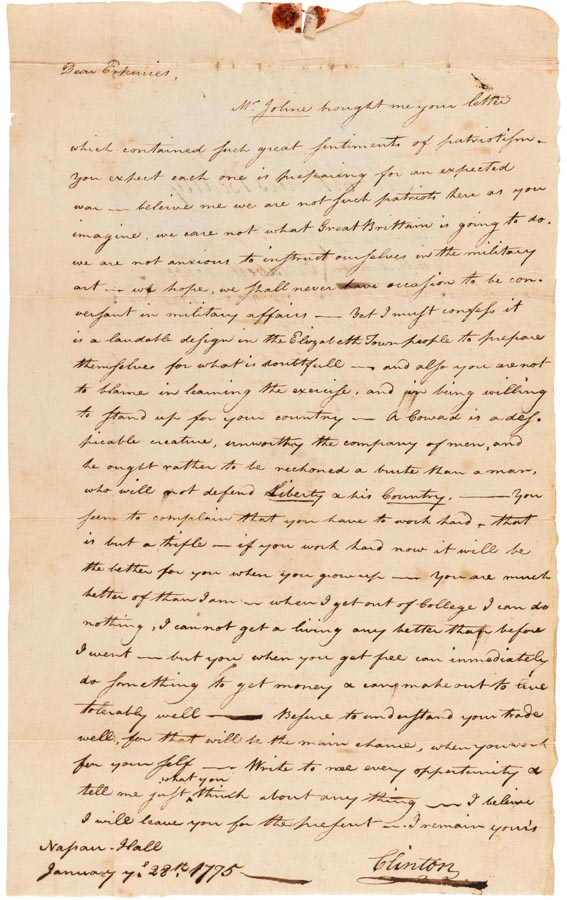 Dear Erkuries,
Mr. Joline brought me your letter
which contained such great sentiments of patriotism.
You expect each one is preparing for an expected
war — beleive me we are not such patriots here as you
imagine, we care not what Great Brittain is going to do.
we are not anxious to instruct ourselves in the military
art — we hope, we shall never have occasion to be con-
versant in military affairs — Yet I must confess it
is a laudable design in the Elizabeth Town people to prepare
themselves for what is doubtfull — and also you are not
to blame in learning the exercise, and in being willing
to stand up for your country — A Coward is a des-
picable creature, unworthy the company of men, and
he ought rather to be reckoned a brute than a man,
who will not defend Liberty & his Country. — You
seem to complain that you have to work hard, that
is but a trifle — if you work hard now it will be
the better for you when you grow up — You are much
better of than I am — when I get out of College I can do
nothing, I can not get a living any better than before
I went — but you when you get free can immediately
do something to get money & can make out to live
tolerably well — Besure to understand your trade
well, for that will be the main chance, when you work
for your self — Write to me every opportunity &
tell me just what you think about any thing — I beleive
I will leave you for the present — I remain yours
Clinton
Nassau-Hall
January ye. 28th. 1775